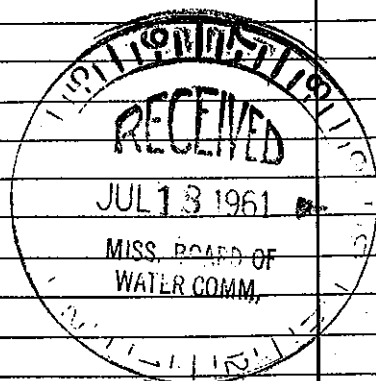 5 6 7 8
RECEIVED
JUL 13 1961
MISS. BOARD OF
WATER COMM.